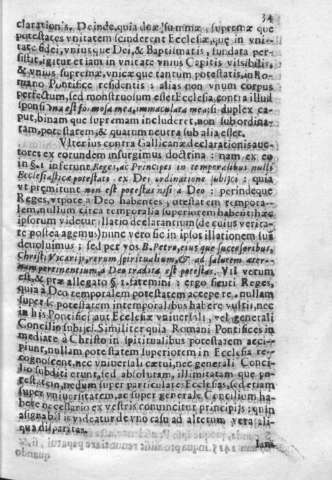 34
clarationis. Deinde, quia duæ summæ, supremæ que
potestates vnitatem scinderent Ecclesiæ, quę in vni-
tate fidei, vniusque Dei, & Baptismatis, fundata per-
sistit, igitur et iam in vnitate vnius Capitis visibilis,
& vnius supremæ, vnicæ que tantum potestatis, in Ro-
mano Pontifice residentis: alias non vnum corpus
perfectum, sed monstruosum esset Ecclesia, contra illud
sponsi vna est formosa mea, immaculata mea: si duplex ca-
put, binam que supremam includeret, non subordina-
tam, potestatem, & quarum neutra sub alia esset.
Vlterius contra Gallicanæ declarationis auc-
tores ex eorundem insurgimus doctrina: nam ex eo
in §. 1. inferunt, Reges, & Principes in temporalibus nulli
Ecclesiasticæ potestati, ex Dei ordinatione subijci; quia,
ut præmittunt non est potestas nisi a Deo: perindeque
Reges, vtpote a Deo habentes potestatem tempora-
lem, nullum circa temporalia superiorem habent: hæc
ipsorum videtur illatio declarantium (de cuius verita-
te postea agemus) nunc vero sic in ipsos illationem sus
deuoluimus: sed per vos B. Petro, eius que successoribus,
Christi Vicarijs, rerum spiritualium, & ad salutem æter-
nam pertinentium, a Deo tradita est potestas. Vti verum
est, & præ allegato §. 1. fatemini: ergo sicuti Reges,
quia a Deo temporalem potestatem accepere, nullam
super se potestatem in temporalibus habere vultis, nec
in his Pontifici aut Ecclesiæ vniuersali, vel generali
Concilio subijci. Similiter quia Romani Pontifices im
mediate a Christo in spiritualibus potestatem acci-
piunt, nullam potestatem superiorem in Ecclesia re-
cognoscent, nec vniuersali cætui, nec generali Conci-
lio subditi erunt, sed absolutam, illimitatam que po-
testatem, nedum super particulares Ecclesias, sed etiam
super vniuersitatem, ac super generale Concilium ha-
bere necessario ex vestris conuincitur principijs; quin
asignabilis videatur de vno casu ad alterum vera, ali-
qua disparitas.
Iam